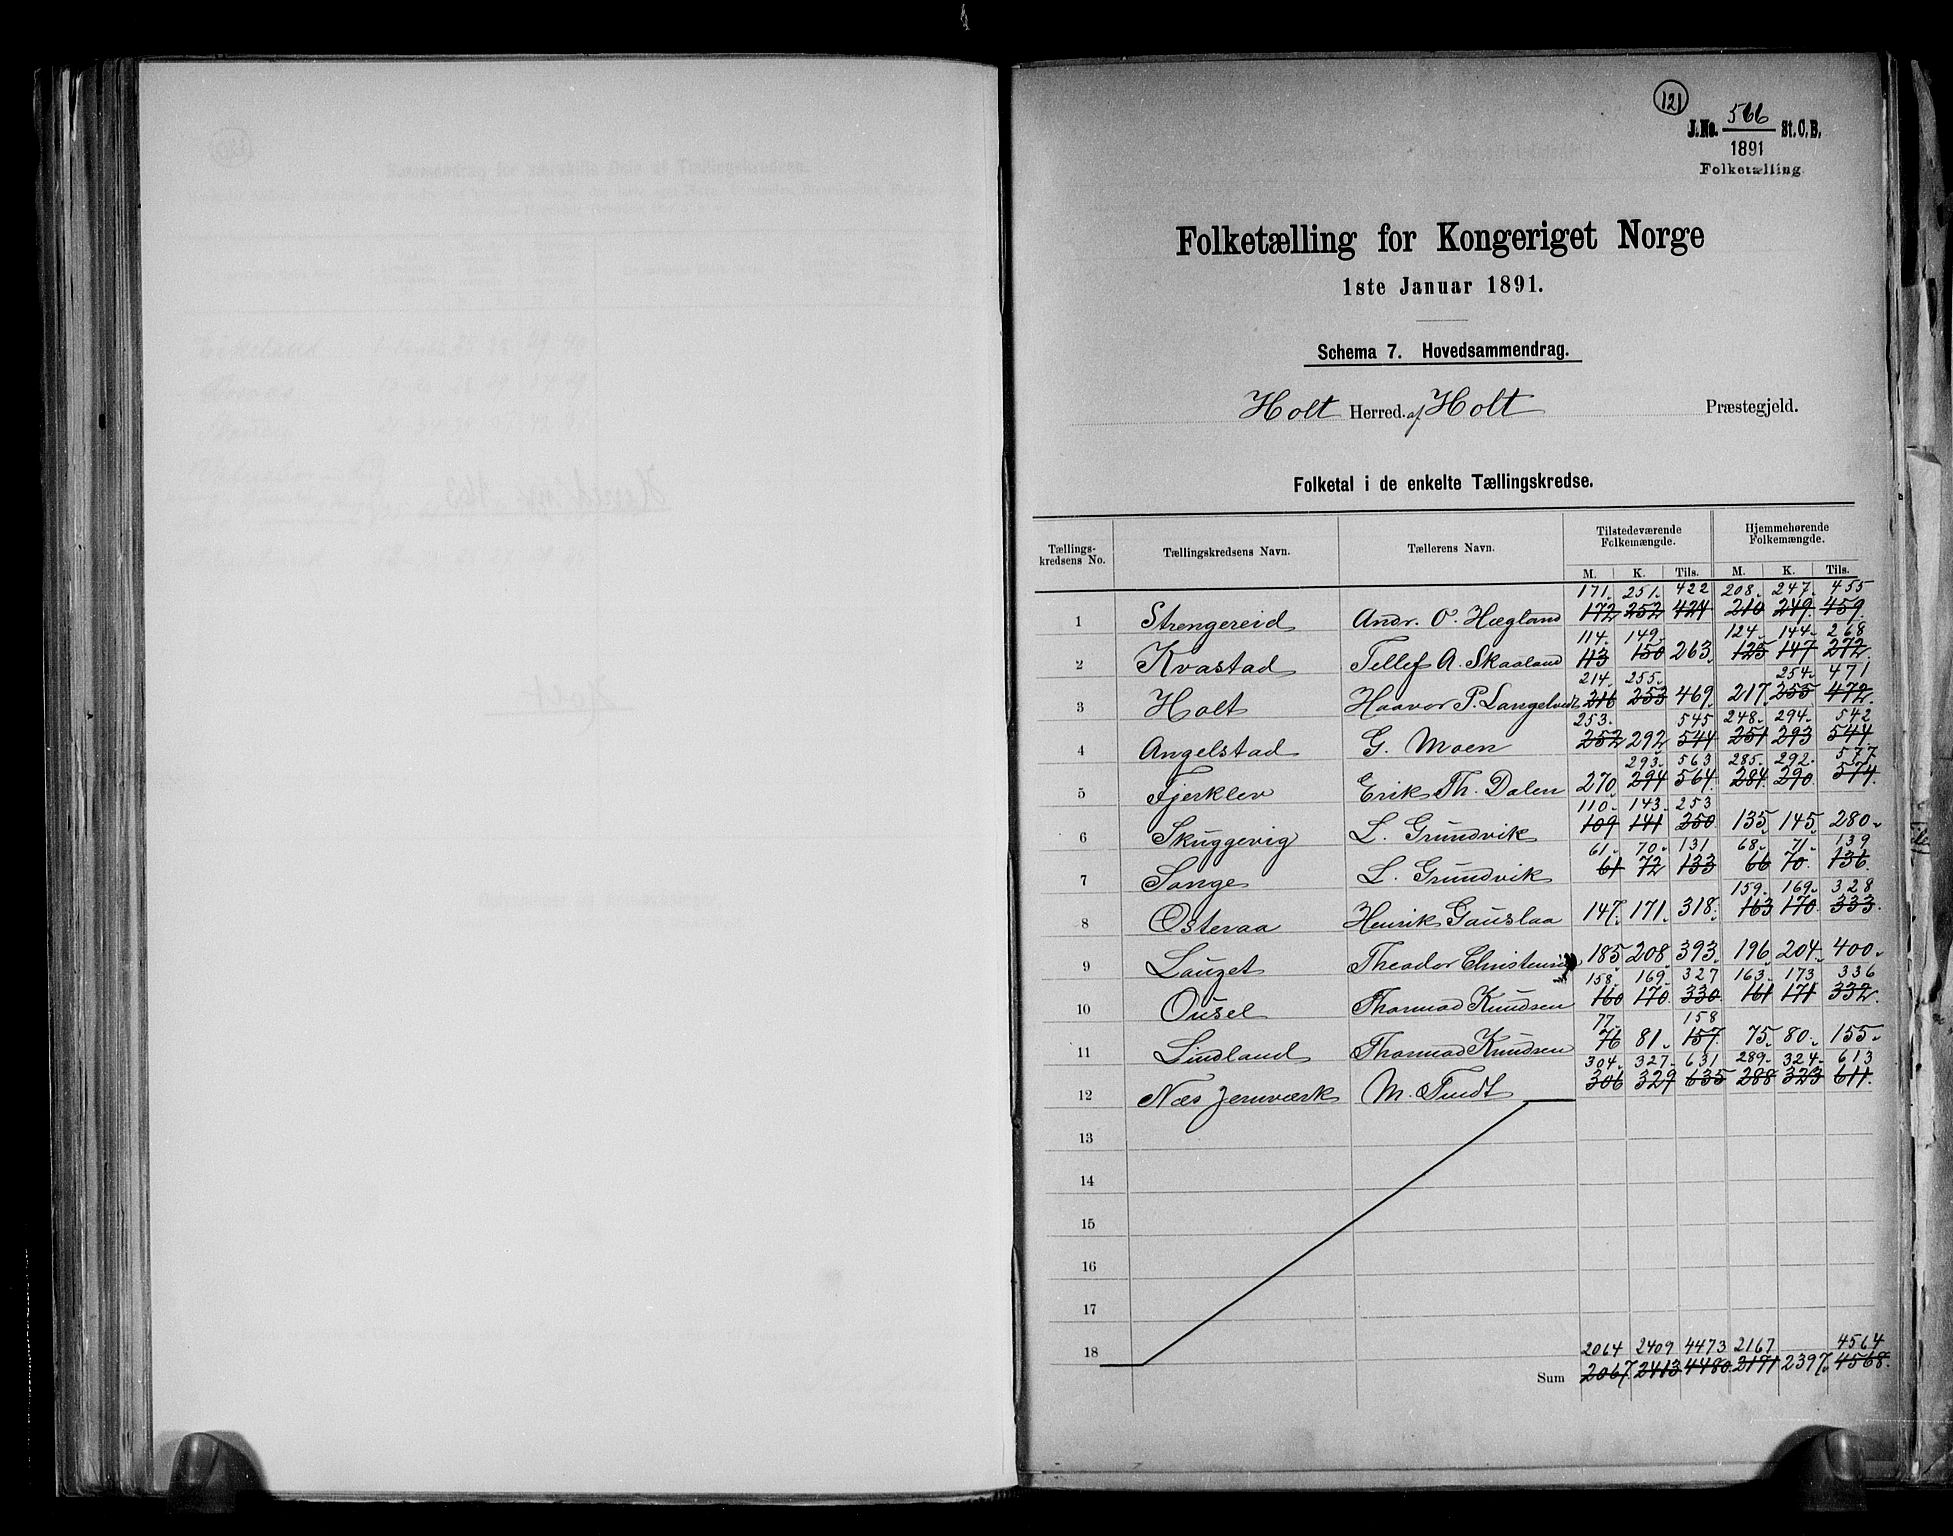 121
J.No. 566 St. C. B.
1891
Folketælling
Folketælling for Kongeriget Norge
1ste Januar 1891.
Schema 7. Hovedsammendrag.
Holt Herred. af Holt Præstegjeld.
Folketal i de enkelte Tællingskredse.
Tællings-kredsens No. Tællingskredsens Navn. Tællerens Navn. Tilstedeværende Folkemængde. Hjemmehørende Folkemængde.
M. K. Tils. M. K. Tils.
171. 251. 422 208. 247. 455
1 Strengereid Andr. O. Hægland 172 252 424 210 249. 459.
114. 149. 124. 144. 268
2 Kvastad Tellef A. Skaaland 113 150 263. 125 147 272.
214. 255. 254. 471
3 Holt Haavor P. Langelvidt 216 253 469. 217. 255 472.
253. 545 248. 294. 542
4 Angelstad G. Moen 252 292 544 251 293 544.
293. 563 285. 292. 577
5 Fjerklev Erik Th. Dalen 270. 294 564. 284. 290. 574.
110. 143. 253
6 Skuggevig L. Grundvik 109 141 250. 135. 145. 280.
61. 70. 131 68. 71. 139
7 Songe L. Grundvik 61 72 133 66 70. 136.
159. 169. 328
8 Osteraa Henrik Gauslaa 147. 171. 318. 163 170. 333.
9 Lauget Theodor Christensen 185. 208. 393. 196. 204. 400.
158. 169. 327 163. 173 336
10 Ousel Thormod Knudsen 160 170. 330. 161 171 332.
77. 158
11 Lindland Thormod Knudsen 76 81. 157. 75. 80. 155.
304. 327. 631 289. 324. 613
12 Næs Jernværk M. Tundt 306 329 635 288 323 611.
13
14
15
16
17
18
2064 2409 4473 2167 4564
Sum 2067. 2413 4480. 2171 2397. 4568.